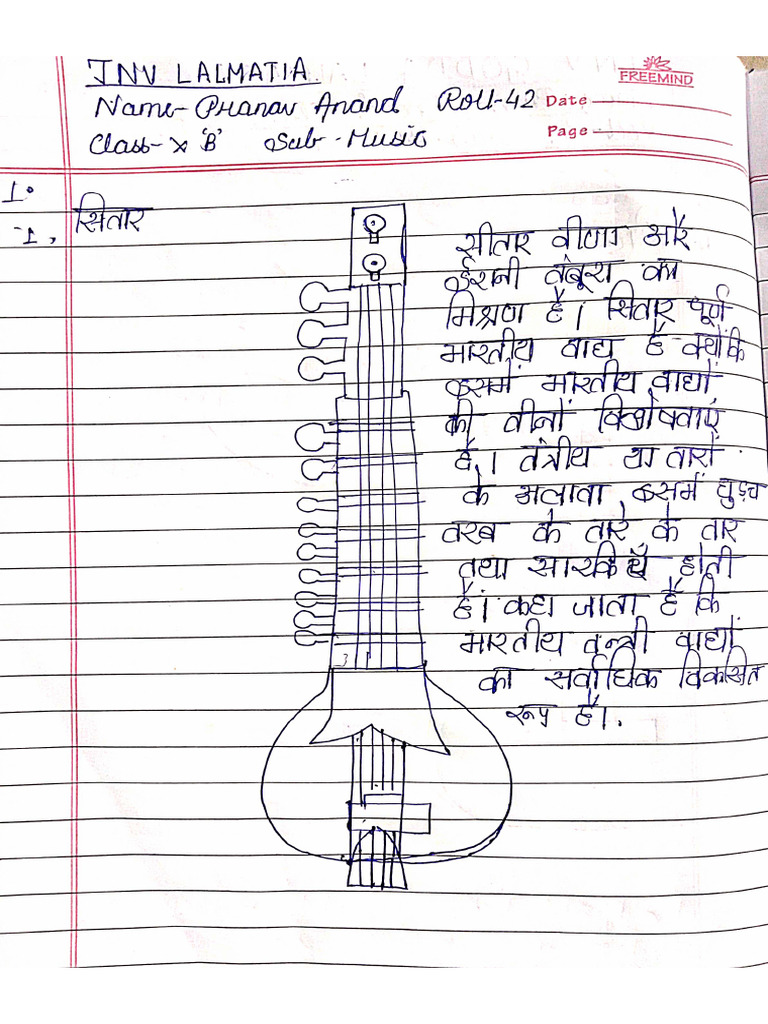 JNV LALMATIA
FREEMIND
Name- Pranav Anand Roll-42 Date
Class- X 'B' Sub - Music Page
1.
-1, सितार
सीतार वीणा और
ईरानी तंबूरा का
मिश्रण है। सितार पूर्ण
भारतीय वाद्य है क्योंकि
इसमें भारतीय वाद्यों
की तीनों विशेषताएं
हैं। तंत्रीय या तारों
के अलावा इसमें घुड़च
तरब के तारे के तार
तथा सारकियाँ होती
हैं। कहा जाता है कि
भारतीय तन्त्री वाद्यों
का सर्वाधिक विकसित
रूप है।